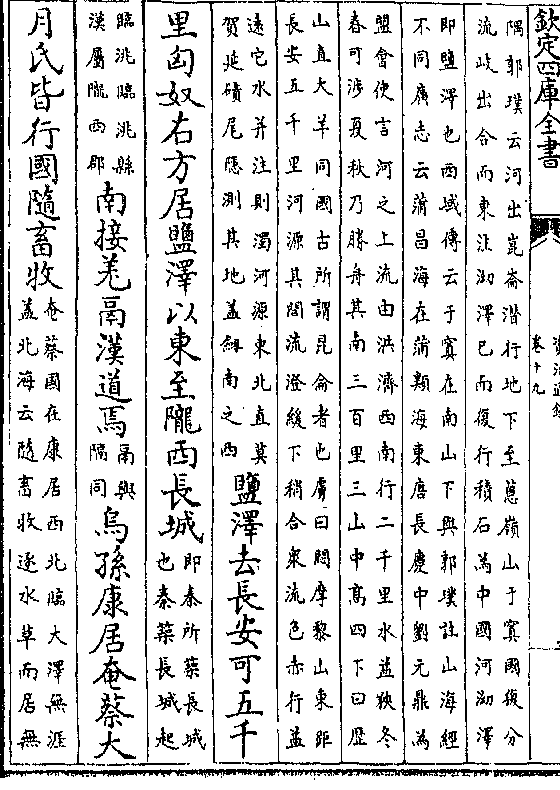 欽定四庫全書
卷十九
隅郭璞云河出崑崙潛行地下至蔥嶺山于窴國復分
流歧出合而東注泑澤已而復行積石為中國河泑澤
即鹽澤也西域傳云于窴在南山下與郭璞註山海經
不同廣志云蒲昌海在蒲類海東唐長慶中劉元鼎為
盟會使言河之上流由洪濟西南行二千里水益狹冬
春可涉夏秋乃勝舟其南三百里三山中高四下曰歷
山直大羊同國古所謂昆侖者也虜曰悶摩黎山東距
長安五千里河源其間流澄緩下稍合衆流色赤行益
遠它水并注則濁河源東北直莫
賀延磧尾隱測其地蓋劍南之西
鹽澤去長安可五千
里匈奴右方居鹽澤以東至隴西長城
即秦所築長城
也秦築長城起
臨洮臨洮縣
漢屬隴西郡
南接羌鬲漢道焉
鬲與
隔同
烏孫康居奄蔡大
月氏皆行國隨畜牧
奄蔡國在康居西北臨大澤無涯
蓋北海云隨畜牧逐水草而居無